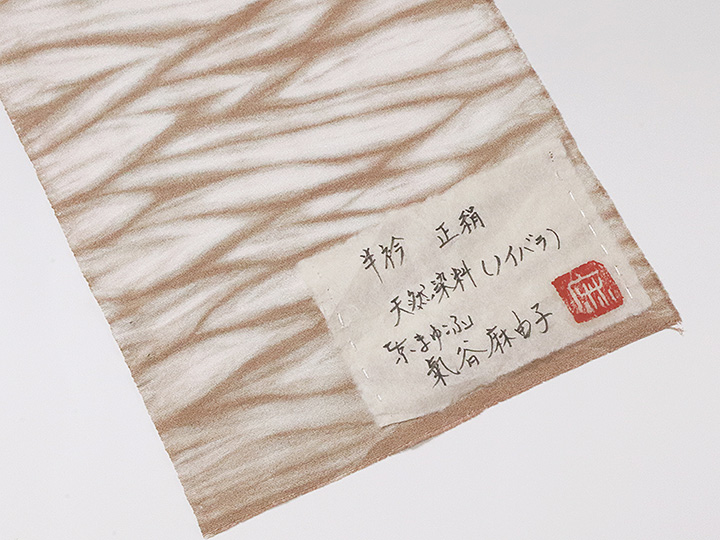 半衿　正絹
天然染料(ノイバラ)
京まゆふ
氣谷麻由子
麻